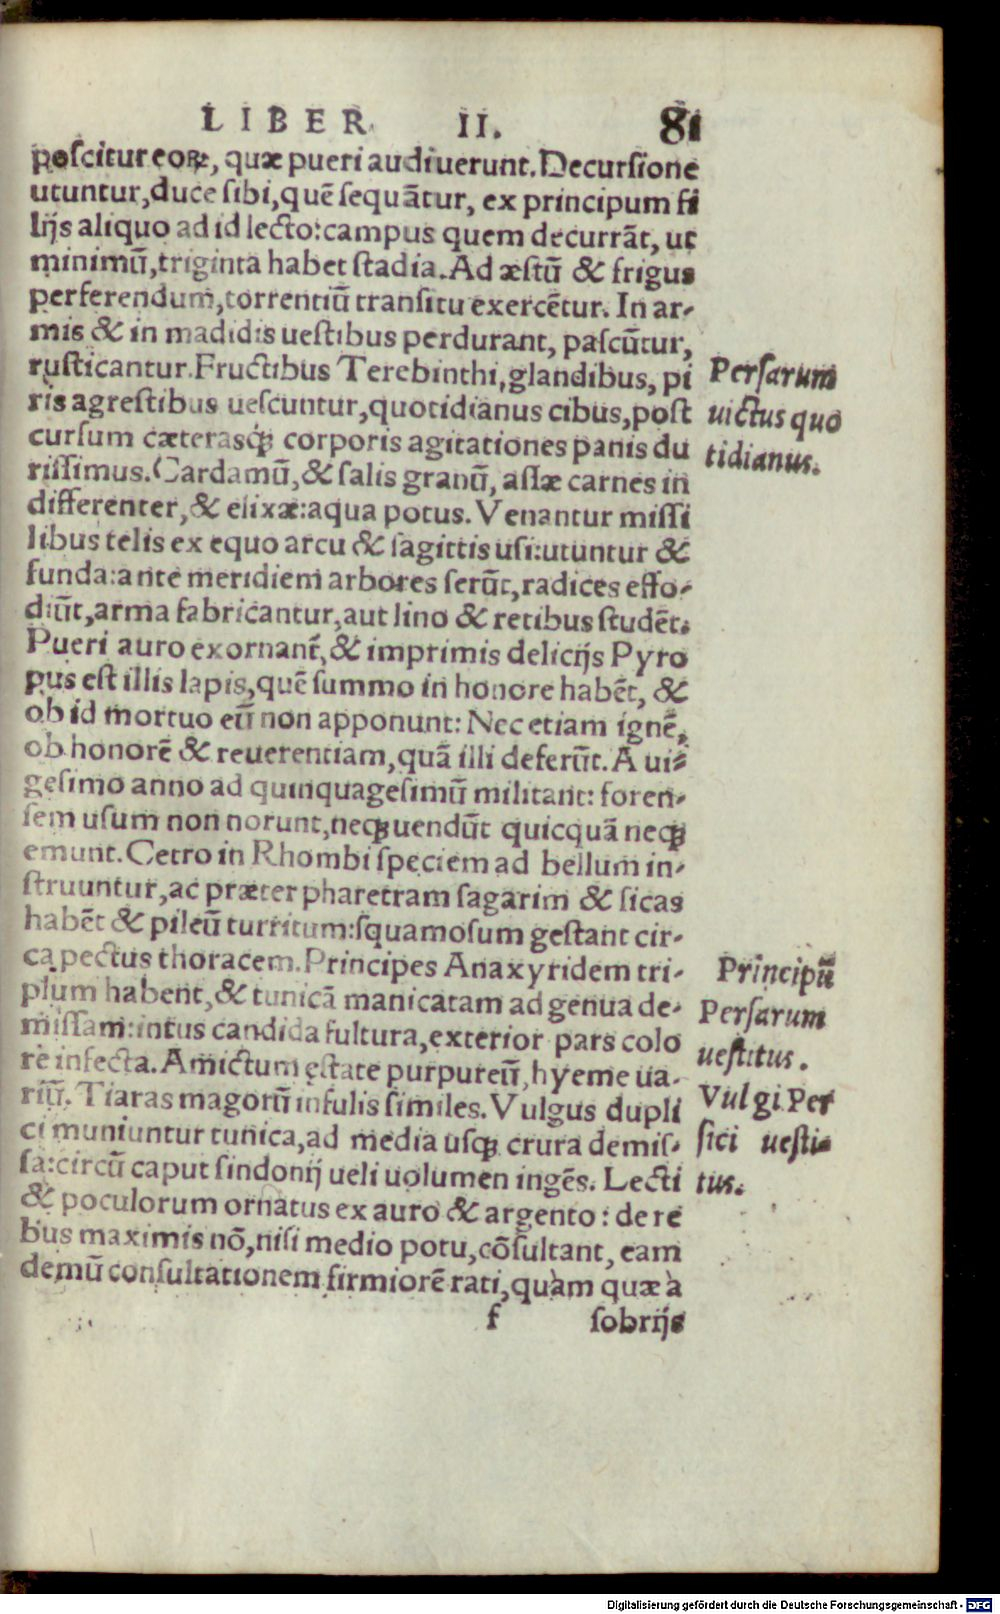 LIBER II. 81
poſcitur eoꝝ, quæ pueri audiuerunt. Decurſione
utuntur, duce ſibi, quē ſequātur, ex principum fi
lijs aliquo ad id lecto: campus quem decurrāt, ut
minimū, triginta habet ſtadia. Ad æſtū & frigus
perferendum, torrentiū tranſitu exercētur. In ar-
mis & in madidis ueſtibus perdurant, paſcūtur,
ruſticantur. Fructibus Terebinthi, glandibus, pi
ris agreſtibus ueſcuntur, quotidianus cibus, poſt
curſum cæterasq́; corporis agitationes panis du
riſſimus. Cardamū, & ſalis granū, aſſæ carnes in
differenter, & elixæ: aqua potus. Venantur miſſi
libus telis ex equo arcu & ſagittis uſi: utuntur &
funda: ante meridiem arbores ſerūt, radices effo-
diūt, arma fabricantur, aut lino & retibus ſtudēt.
Pueri auro exornant̄, & imprimis delicijs Pyro
pus eſt illis lapis, quē ſummo in honore habēt, &
ob id mortuo eū non apponunt: Nec etiam ignē,
ob honorē & reuerentiam, quā illi deferūt. A ui-
geſimo anno ad quinquageſimū militant: foren-
ſem uſum non norunt, neq; uendūt quicquā neq;
emunt. Cetro in Rhombi ſpeciem ad bellum in-
ſtruuntur, ac præter pharetram ſagarim & ſicas
habēt & pileū turritum: ſquamoſum geſtant cir-
ca pectus thoracem. Principes Anaxyridem tri-
plum habent, & tunicā manicatam ad genua de-
miſſam: intus candida fultura, exterior pars colo
re infecta. Amictum ęſtate purpureū, hyeme ua-
riū. Tiaras magorū infulis ſimiles. Vulgus dupli
ci muniuntur tunica, ad media uſq; crura demiſ-
ſa: circū caput ſindonij ueli uolumen ingēs. Lecti
& poculorum ornatus ex auro & argento: de re
bus maximis nō, niſi medio potu, cōſultant, eam
demū conſultationem firmiorē rati, quàm quæ à
f ſobrijs
Perſarum
uictus quo
tidianus.
Principū
Perſarum
ueſtitus.
Vulgi Per
ſici ueſti-
tus.
Digitalisierung gefördert durch die Deutsche Forschungsgemeinschaft - DFG